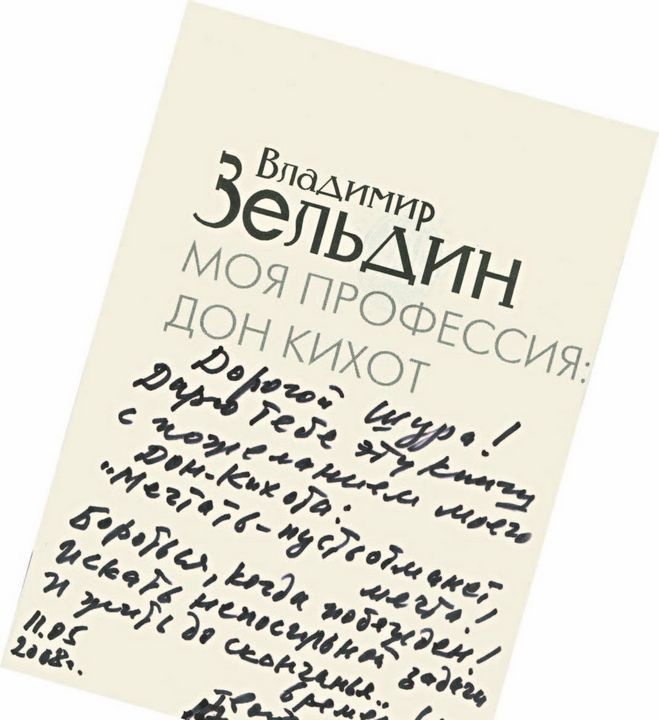 Владимир
Зельдин
МОЯ ПРОФЕССИЯ:
ДОН КИХОТ
Дорогой Шура!
Дарю Тебе эту книгу
с пожеланием моего
Дон-Кихота:
"Мечтать - пусть обманет
мечта!
Бороться, когда побежден!
Искать непосильной задачи
и жить до скончанья..
времен
11.05
2008г.